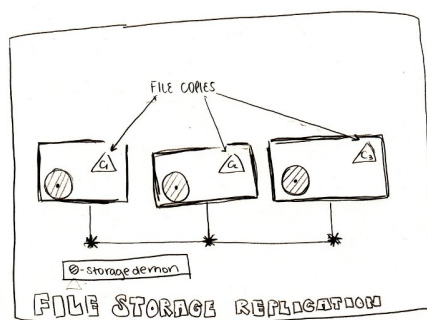 FILE COPIES
C1 C2 C3
- storage demon
FILE STORAGE REPLICATION